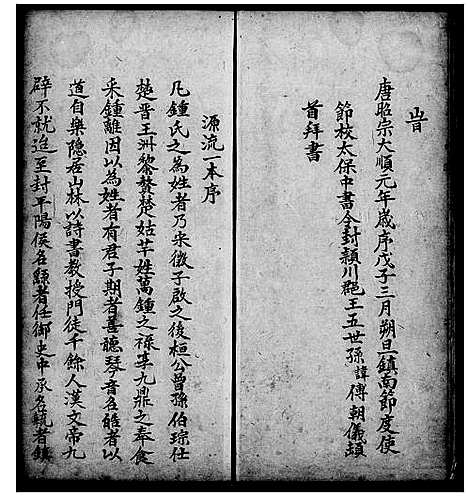 旹
唐昭宗大順元年歲序戊子三月朔旦鎮南節度使
節校太保中書令封潁川郡王五世孫諱傳朝儀頓
首拜書
源流一本序
凡鍾氏之為姓者乃宋微子啟之後桓公曾孫伯琮仕
楚晋王洲黎楚姑羋姓萬鍾之祿享九鼎之奉食
采鍾離因以為姓者有君子期者善聽琴音名皓者以
道自樂隱居山林以詩書教授門徒千餘人漢文帝九
辟不就進至封平陽侯名繇者任御史中承名毓者鎮